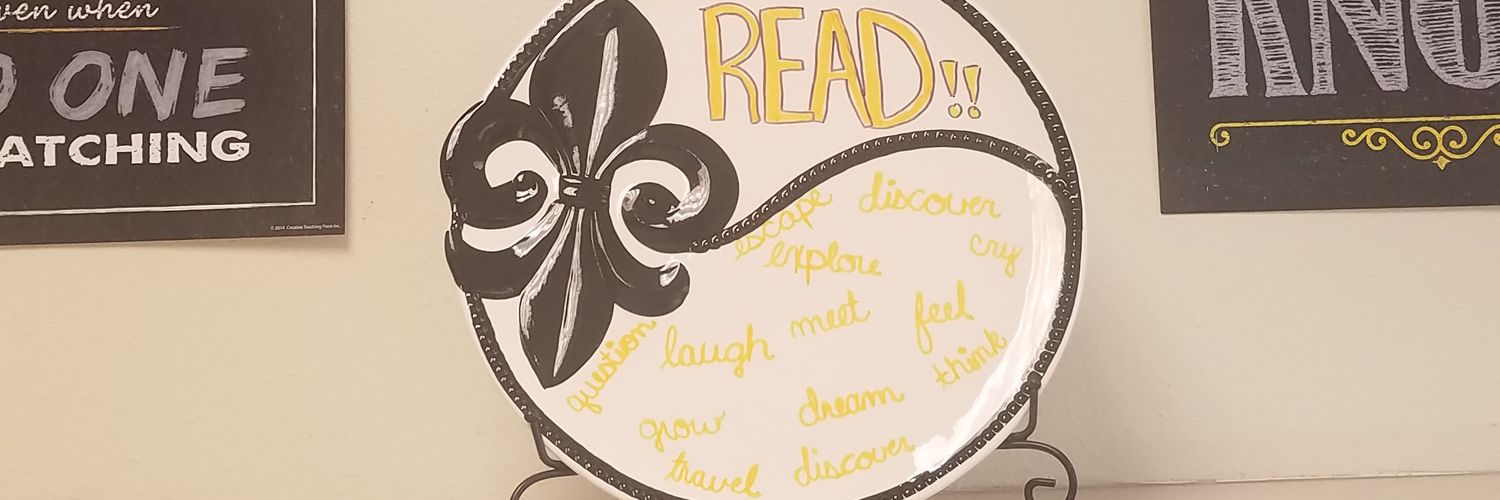 ven when
O ONE
ATCHING
© 2014 Creative Teaching Press Inc.
READ!!
escape
discover
explore
cry
meet
feel
laugh
question
think
dream
grow
discover
travel
KNO